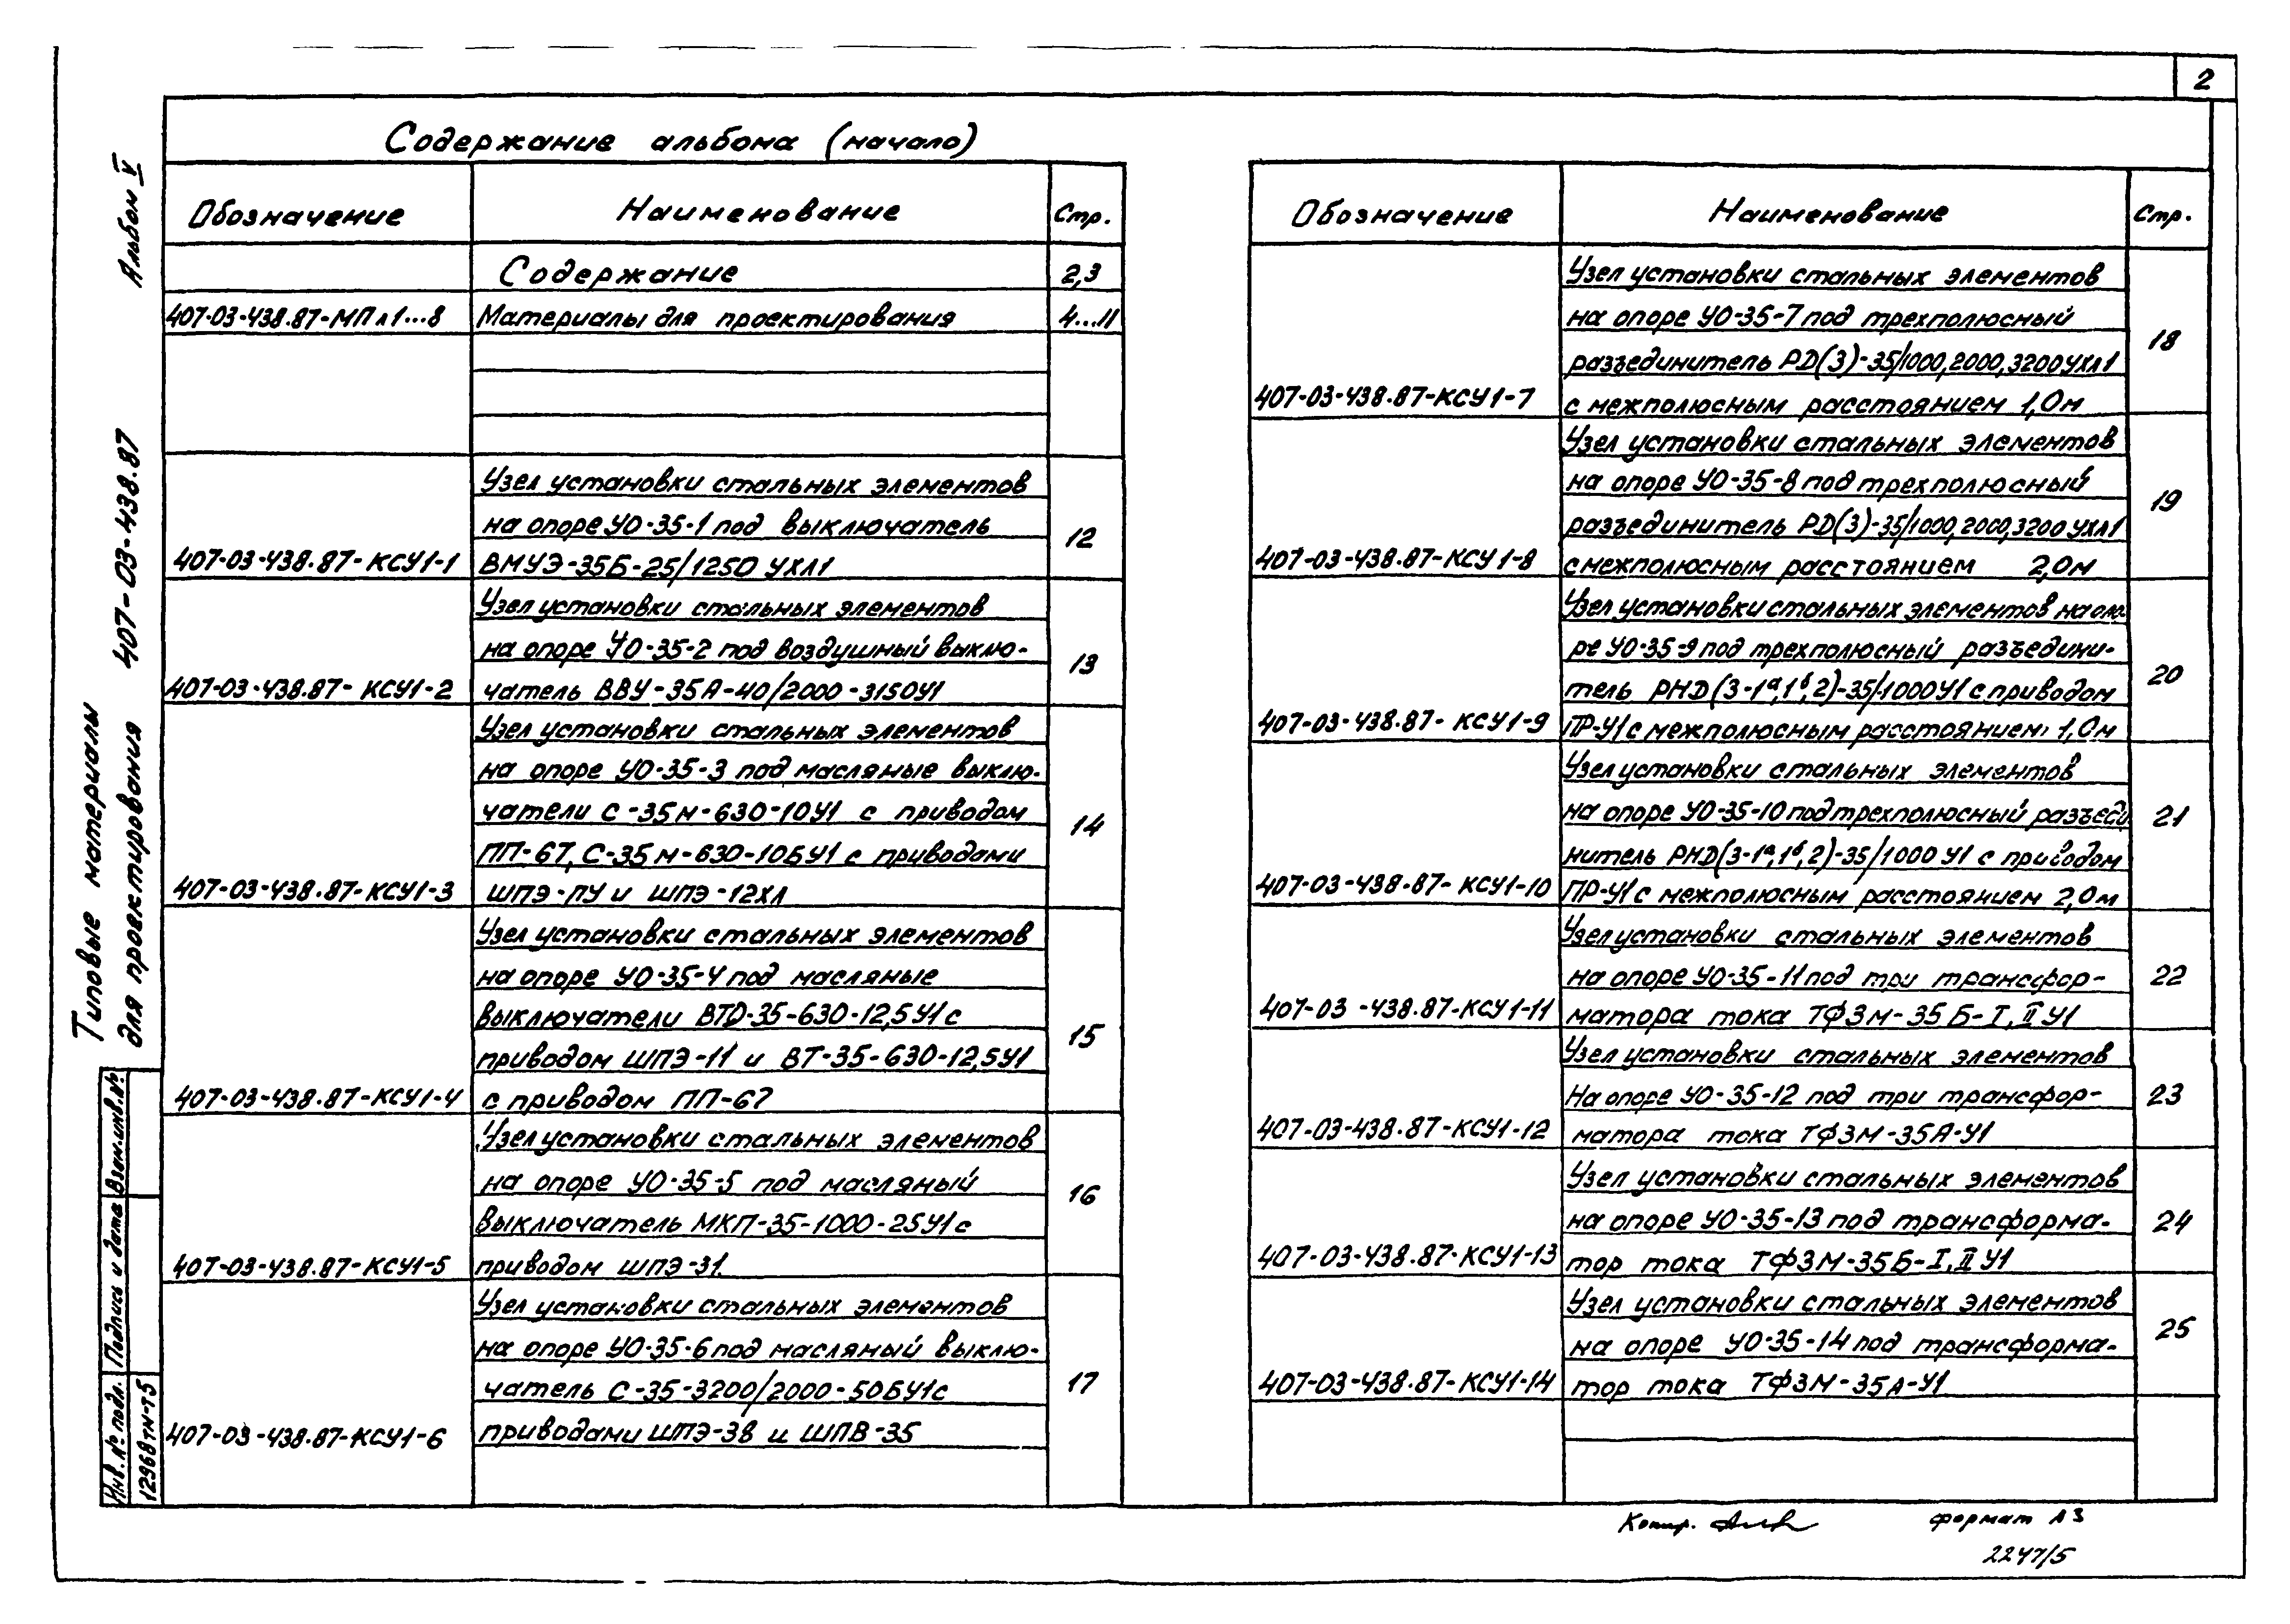 2
Содержание альбома (начало)
Обозначение Наименование Стр.
Содержание 2,3
407-03-438.87-МП л1...8 Материалы для проектирования 4...11
Узел установки стальных элементов
на опоре УО-35-1 под выключатель
407-03-438.87-КСУ1-1 ВМУЭ-35Б-25/1250 УХЛ1 12
Узел установки стальных элементов
на опоре УО-35-2 под воздушный выклю-
407-03-438.87-КСУ1-2 чатель ВВУ-35А-40/2000-3150У1 13
Узел установки стальных элементов
на опоре УО-35-3 под масляные выклю-
чатели С-35М-630-10У1 с приводом
ПП-67, С-35М-630-10БУ1 с приводами
407-03-438.87-КСУ1-3 ШПЭ-ПУ и ШПЭ-12ХЛ 14
Узел установки стальных элементов
на опоре УО-35-4 под масляные
выключатели ВТД-35-630-12,5У1 с
приводом ШПЭ-11 и ВТ-35-630-12,5У1
407-03-438.87-КСУ1-4 с приводом ПП-67 15
Узел установки стальных элементов
на опоре УО-35-5 под масляный
выключатель МКП-35-1000-25У1 с
407-03-438.87-КСУ1-5 приводом ШПЭ-31. 16
Узел установки стальных элементов
на опоре УО-35-6 под масляный выклю-
чатель С-35-3200/2000-50БУ1 с
407-03-438.87-КСУ1-6 приводами ШПЭ-38 и ШПВ-35 17
Обозначение Наименование Стр.
Узел установки стальных элементов
на опоре УО-35-7 под трехполюсный
разъединитель РД(З)-35/1000,2000,3200УХЛ1
407-03-438.87-КСУ1-7 с межполюсным расстоянием 1,0м 18
Узел установки стальных элементов
на опоре УО-35-8 под трехполюсный
разъединитель РД(З)-35/1000,2000,3200 УХЛ1
407-03-438.87-КСУ1-8 с межполюсным расстоянием 2,0м 19
Узел установки стальных элементов на опо-
ре УО-35-9 под трехполюсный разъедини-
тель РНД(З-1а,1б,2)-35/1000У1 с приводом
407-03-438.87-КСУ1-9 ПР-У1 с межполюсным расстоянием 1,0м 20
Узел установки стальных элементов
на опоре УО-35-10 под трехполюсный разъеди
нитель РНД(З-1а,1б,2)-35/1000 У1 с приводом
407-03-438.87-КСУ1-10 ПР-У1 с межполюсным расстоянием 2,0м 21
Узел установки стальных элементов
на опоре УО-35-11 под три трансфор-
407-03-438.87-КСУ1-11 матора тока ТФЗМ-35Б-I, II У1 22
Узел установки стальных элементов
На опоре УО-35-12 под три трансфор-
407-03-438.87-КСУ1-12 матора тока ТФЗМ-35А-У1 23
Узел установки стальных элементов
на опоре УО-35-13 под трансформа-
407-03-438.87-КСУ1-13 тор тока ТФЗМ-35Б-I, II У1 24
Узел установки стальных элементов
на опоре УО-35-14 под трансформа-
407-03-438.87-КСУ1-14 тор тока ТФЗМ-35А-У1 25
Типовые материалы
для проектирования 407-03-438.87 Альбом V
Инв. № подл. Подпись и дата Взам.инв.№
12968тм-т5
Копир. формат А3
2247/5